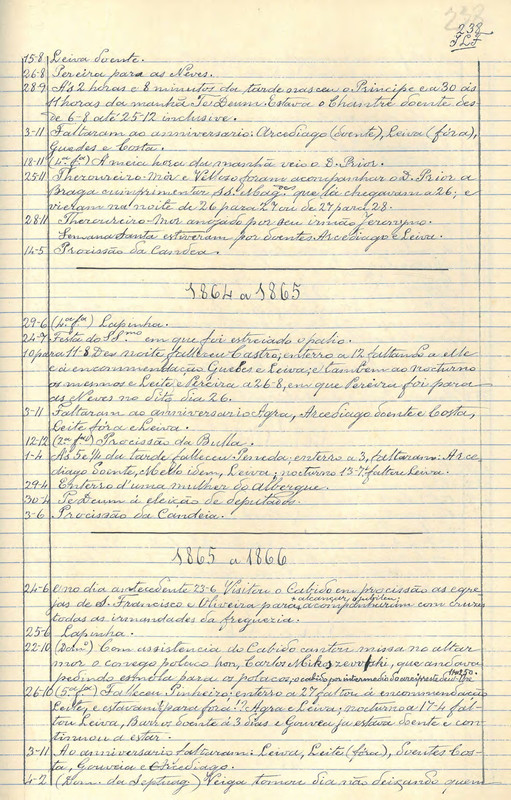 238
15-8 Leiva doente.
26-8 Pereira para as Neves.
28-9 Ás 2 horas e 8 minutos da tarde nasceu o Principe e a 30 ás
11 horas da manhã Te Deum. Estava o Chantre doente des-
de 6-8 até 25-12 inclusive.
3-11 Faltaram ao anniversario: Arcediago (doente), Leiva (fóra),
Guedes e Costa.
18-11 (4ª fª) Á meia hora da manhã veio o D. Prior.
25-11 Thesoureiro-Mór e Velloso foram acompanhar o D. Prior a
Braga cumprimentar SS. Mag.des que lá chegaram a 26; e
vieram na noite de 26 para 27 ou de 27 para 28.
28-11 Thesoureiro-Mor anojado por seu irmão Jeronymo.
Semana Santa estiveram por doentes Arcediago e Leiva.
14-5 Procissão da Candea.
1864 a 1865
29-6 (4ª fª) Lapinha.
24-7 Festa do SS.mo em que foi estreiado o palio.
10 para 11-8 De noite falleceu Castro; enterro a 12 faltando a elle
e á encommendação Guedes e Leiva; e tambem ao nocturno
os mesmos e Leite e Pereira a 26-8, em que Pereira foi para
as Neves no dito dia 26.
3-11 Faltaram ao anniversario: Agra, Arcediago doente e Costa,
Leite fóra e Leiva.
12-12 (2ª fª) Procissão da Bulla.
1-4 Ás 5 e 1/4 da tarde falleceu Peneda; enterro a 3, faltaram: Arce-
diago doente, Mello idem, Leiva; nocturno 13-7 faltou Leiva.
29-4 Enterro d'uma mulher do Albergue.
30-4 Te Deum á eleição de deputados.
3-6 Procissão da Candeia.
1865 a 1866
24-6 e no dia antecedente 23-6 Visitou o Cabido em procissão as egre-
jas de S. Francisco e Oliveira para alcançar o jubileu; acompanharam com cruzes
todas as irmandades da freguezia.
25-6 Lapinha.
22-10 (Dom.º) Com assistencia do Cabido cantou missa no altar
mor o conego polaco hon. Carlos Mikoszevoski, que andava
pedindo esmola para os polacos, o cabido por intermedio do arcipreste deu-lhe
26-10 (5ª fª) Falleceu Pinheiro: enterro a 27 faltou á encommendação
Leite, e estavam (para fóra!?) Agra e Leiva; nocturno a 17-4 fal-
tou Leiva, Barros doente á 3 dias e Gouvea já estava doente e con-
tinuou a estar.
3-11 Ao anniversario faltaram: Leiva, Leite (fóra), doentes Cos-
ta, Gouveia e Arcediago.
4-2 (Dom. da Septuag.) Veiga tomou dia não deixando quem